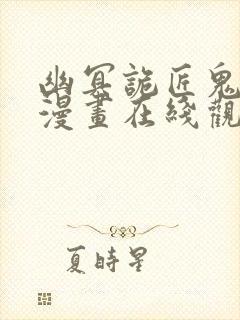 幽冥詭匠鬼
漫畫在綫觀
夏時星